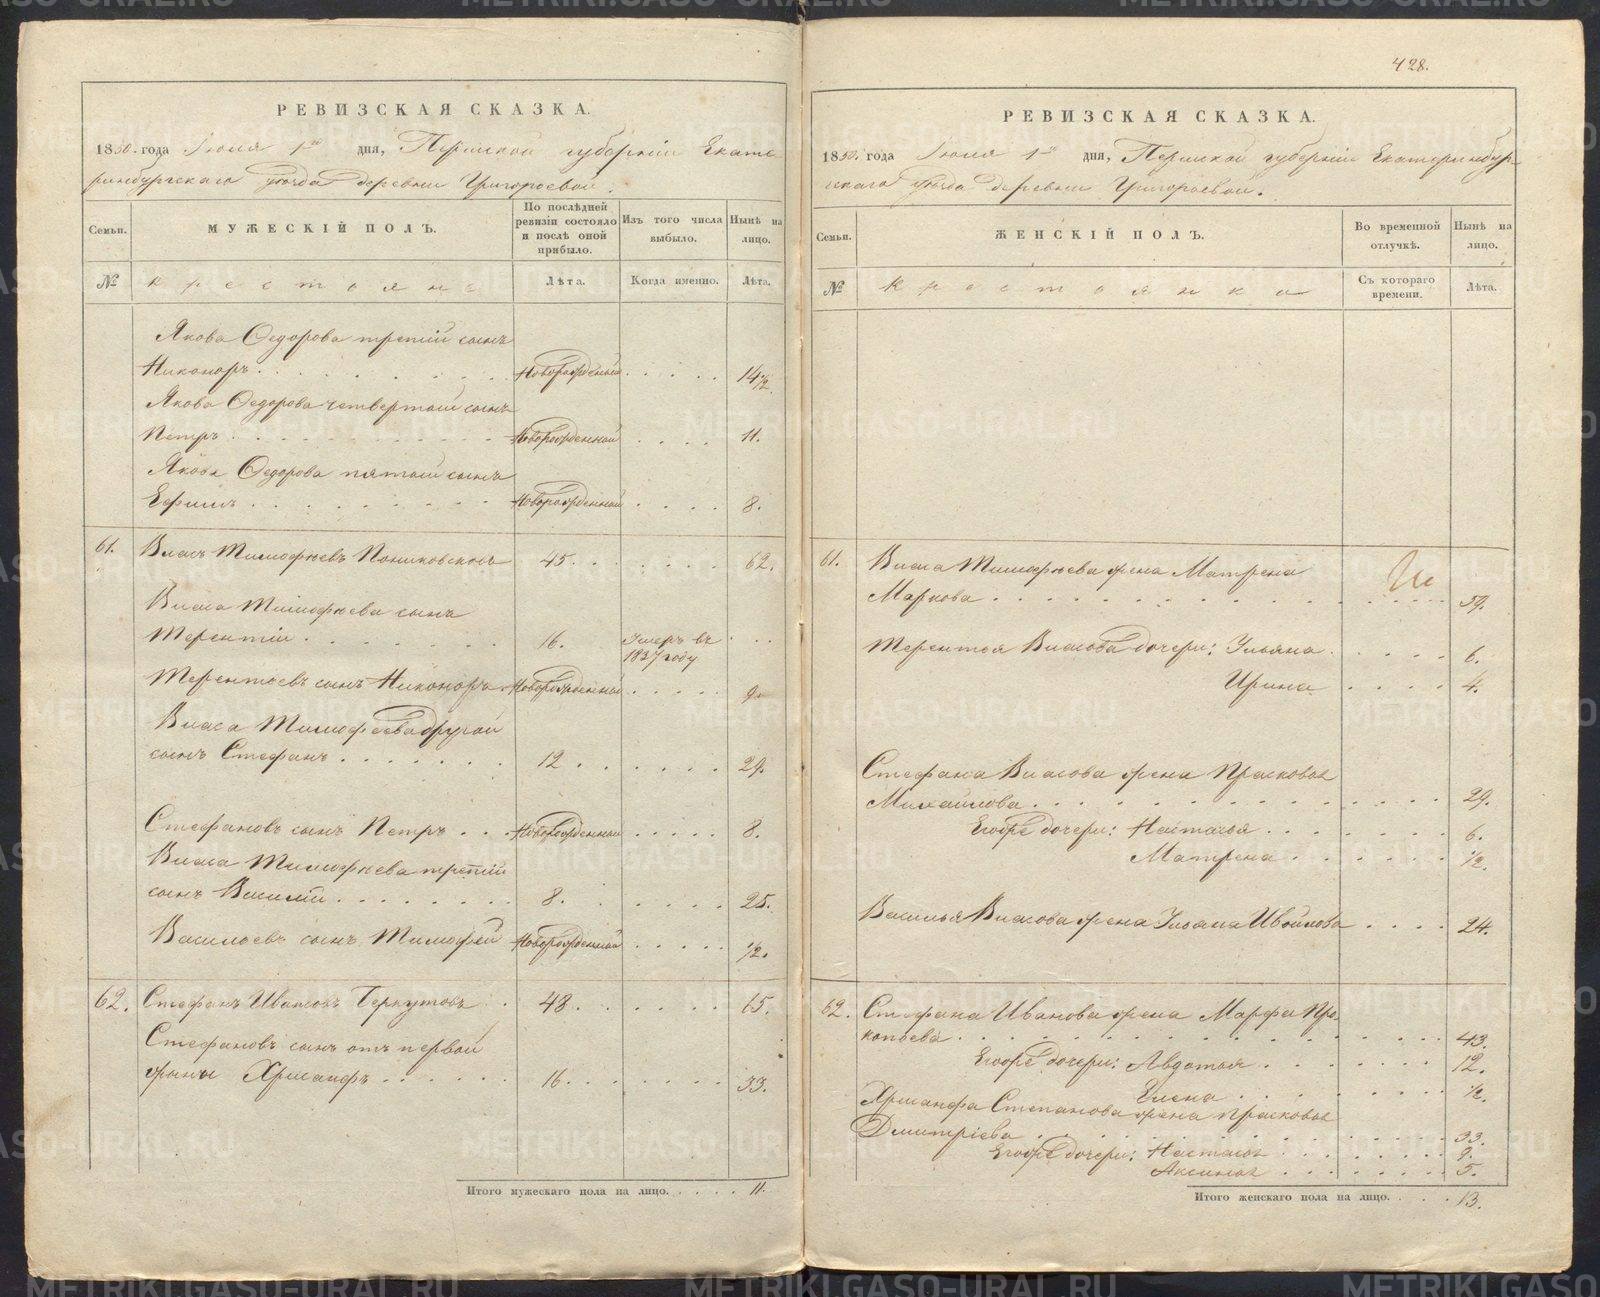 РЕВИЗСКАЯ СКАЗКА.
1850 года Июля 1го дня, Пермской губерніи Екате-
ринбургскаго уѣзда деревни Григорьевой.
Семьи.
МУЖЕСКІЙ ПОЛЪ.
По послѣдней ревизіи состояло и послѣ оной прибыло.
Изъ того числа выбыло.
Нынѣ на лицо.
№
крестьяне
Лѣта.
Когда именно.
Лѣта.
Якова Ѳедорова третій сынъ
Никоноръ . Новорожденный . 14 1/2
Якова Ѳедорова четвертой сынъ
Петръ . Новорожденной . 11.
Якова Ѳедорова пятой сынъ
Ефимъ . Новорожденной . 8.
61. Власъ Тимофѣевъ 45. 62.
Власа Тимофѣева сынъ
Терентій . 16. Умеръ въ
1837 году
Терентьевъ сынъ Никоноръ . Новорожденный . 9.
Власа Тимофеева другой
сынъ Стефанъ . 12 . 29.
Стефановъ сынъ Петръ . Новорожденный . 8.
Власа Тимофѣева третій
сынъ Василій . 8. 25.
Васильевъ сынъ Тимофей Новорожденный . 1/2.
62. Стефанъ Ивановъ Беркутовъ . 48. 65.
Стефановъ сынъ отъ первой
жены Хрисанфъ . 16. 33.
Итого мужескаго пола на лицо. 11.
428.
РЕВИЗСКАЯ СКАЗКА.
1850 года Июля 1го дня, Пермской губерніи Екатеринбур-
скаго уѣзда деревни Григорьевой.
Семьи.
ЖЕНСКІЙ ПОЛЪ.
Во временной отлучкѣ.
Нынѣ на лицо.
№
крестьянки
Съ котораго времени.
Лѣта.
61. Власа Тимофѣева жена Матрена
Маркова . 59.
Терентья Власова дочери: Ульяна . 6.
Ирина . 4.
Стефана Власова жена Прасковья
Михайлова . 29.
Егоже дочери: Настасья . 6.
Матрена . 1/2.
Василья Власова жена Ульяна . 24.
62. Стефана Иванова жена Марфа Про-
копьева . 43.
Егоже дочери: Авдотья . 12.
Елена . 1/2.
Хрисанфа Степанова жена Прасковья
Дмитріева . 33.
Егоже дочери: Настасья . 9.
Аксинья . 5.
Итого женскаго пола на лицо. 13.
METRIKI.GASO-URAL.RU